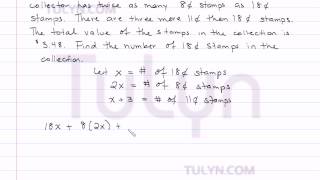 collector has twice as many 8¢ stamps as 18¢
stamps. There are three more 11¢ then 18¢ stamps.
The total value of the stamps in the collection is
$3.48. Find the number of 18¢ stamps in the
collection.
Let x = # of 18¢ stamps
2x = # of 8¢ stamps
x + 3 = # of 11¢ stamps
18x + 8(2x) +
Tulyn
TULYN.COM
TULYN.COM